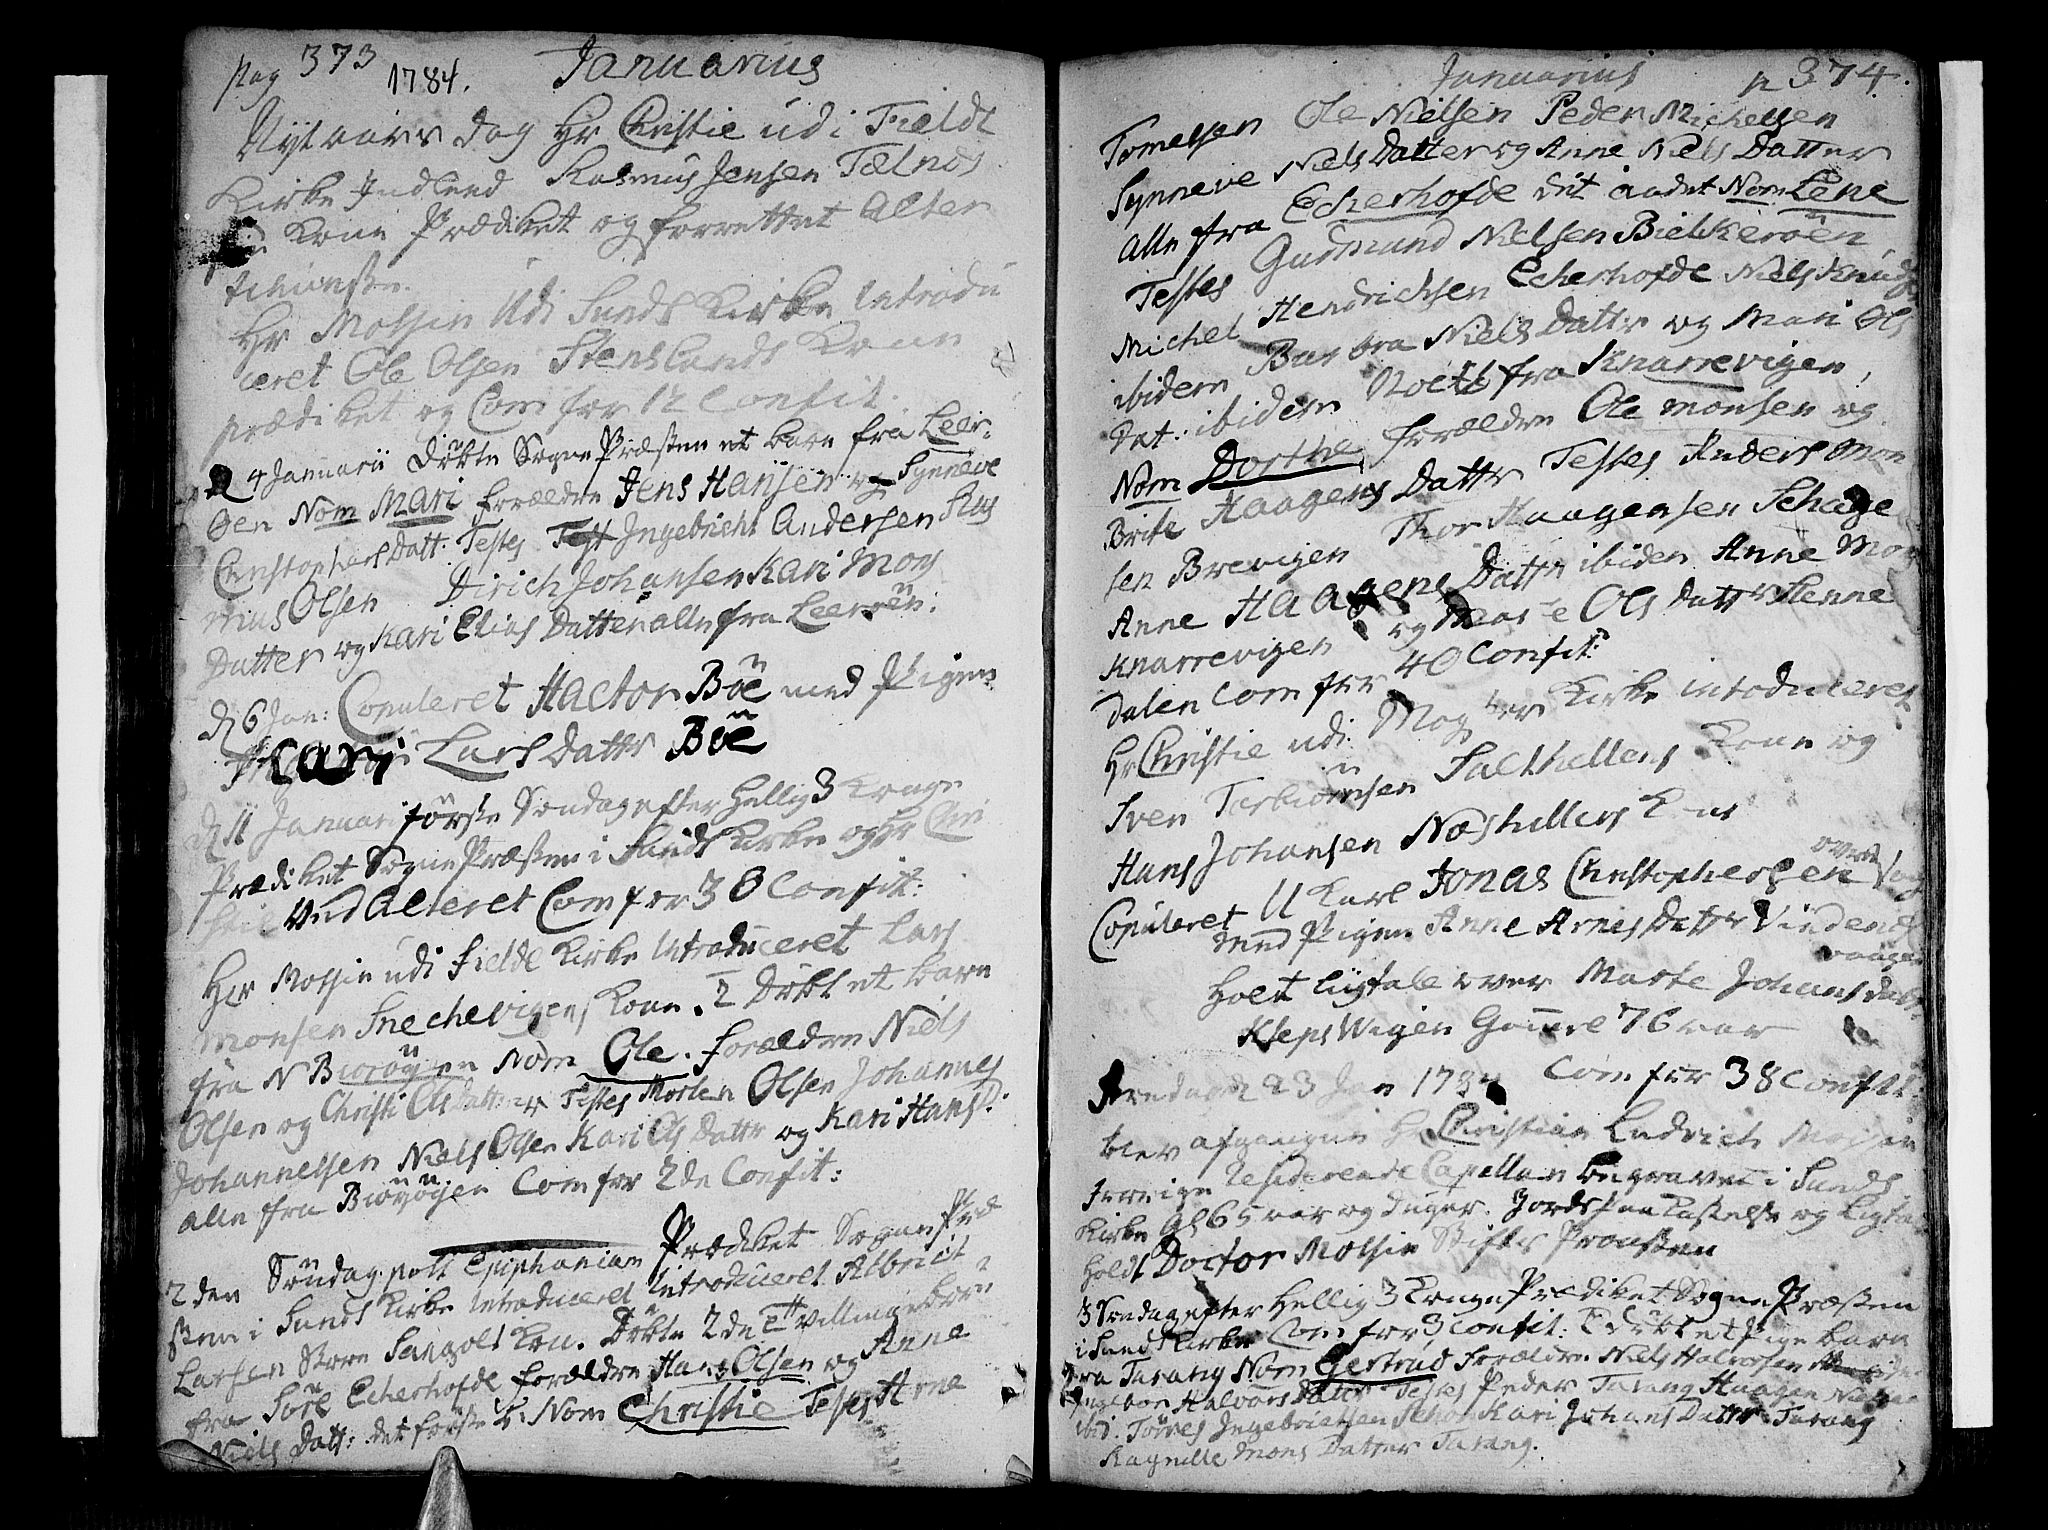 pag 373 1784. Januarius
Nytaars dag Hr Christie udi Fieldt
Kirke Indleed Rasmus Jensen Tælnes
Kone Prædiket og forrettet Alter
tienesten.
Hr Mossin Udi Sunds Kirke Introdu
ceret Ole Olsen Stenslands Kone
prædiket og Com for 12 Confit.
d 4 Januarii Döbte Sogne Præsten et barn fra Leer-
öen Nom Mari forældre Jens Hansen og Synneve
Christophers Datt: Testes Test Ingebricht Andersen Ras
mus Olsen Dirich Johansen Kari Mons
Datter og Kari Elias Datter alle fra Leeröen.
d 6 Jan: Copuleret Hactor Böe med Pigen
Kari Lars Datter Böe
d 11 Januari förste Söndag efter Hellig 3 Konge
Prædiket Sogne Præsten i Sunds Kirke og Hr Chri
stie Alteret Com for 38 Confit:
Her Mossin udi Fielde Kirke Introduceret Lars
Monsen Snechevigens Kone. 2 Döbt et barn
fra N Biöröyen Nom Ole. forældre Niels
Olsen og Christi Ols Datter Testes Morten Olsen Johannes
Johannessen Niels Olsen Kari Ols Datter og Kari Hans D:
alle fra Biöröyen Com for 2de Confit:
2den Söndag post Epiphaniam Prædiket Sogne Præ
sten i Sunds Kirke Introduceret Introduceret Albricht
Larsen Store Sangolt Kon. Döbte 2de Tvillinge börn
fra Söre Echerhofde forældre Hans Olsen og Anne
Niels Datt: det förste b: Nom Christie Testes Arne
Januarius p 374.
Tomesen Ole Nielsen Peder Michelsen
Synneve Niels Datter og Anne Niels Datter
alle fra Echerhofde det andet Nom Lene
Testes Gudmund Nielsen Bielkeröen
Michel Hendrichsen Echerhofde Niels Knuds
ibidem Barbra Niels Datter og Mari Ols
Dat: ibidem Noch fra Knarrevigen,
Nom Dorthe forældre Ole Monsen og
Brite Haagens Datter Testes Anders Mon
sen Brevigen Thor Haagensen Schage
Anne Haagens Datter ibiden Anne Mon
Knarrevigen og Marte Ols Datter Stenne
dalen Com for 40 Confit:
Hr Christie udi Mogster Kirke introduceret
Sven Torbiörnsen Salthellens Kone og
Hans Johansen Næshellens K
Copuleret U Karl Jonas Christophersen
med Pigen Anne Arnes Datter Vindenes
vaagen
Holt ligtale over Marte Johans dat
Kleps Wigen Gamle 76 aar
Com for 38 Confit:
Fredagen 23 Jan 1784
blev afgangne Hr Christian Ludvich Mossin
forrige Residerende Capellan begraven i Sunds
Kirke Gl 65 aar og dager. Jords paakastelse og Ligtale
holdt Doctor Mossin Stifts Provsten
3 Söndag efter Hellig 3 Konge Prædiket Sogne Præsten
i Sunds Kirke Com for 3 Confit: Döbt et Pige barn
fra Tarang Nom Gertrud Forældre Niels Halvorsen
Ingebor Halvors Datter Testes Peder Tarang Haagen Nielsen
ibid. Törres Ingebrictsen Schoe Kari Johans Datter Tarang
Ragnille Mons Datter Tarang.